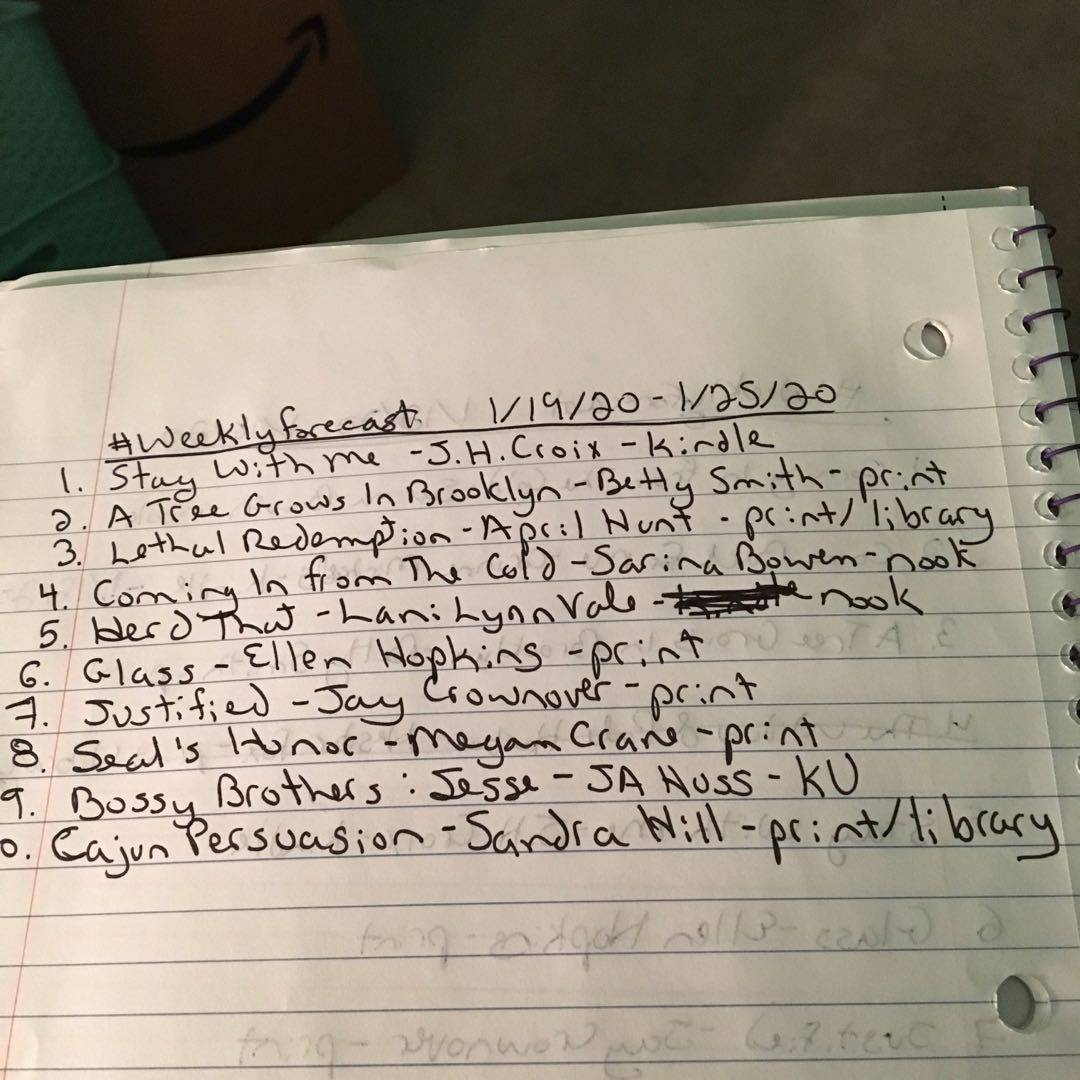 #Weeklyforecast 1/19/20 - 1/25/20
1. Stay With me - J.H. Croix - Kindle
2. A Tree Grows In Brooklyn - Betty Smith - print
3. Lethal Redemption - April Hunt - print/library
4. Coming In from The Cold - Sarina Bowen - nook
5. Herd That - Lani Lynn Vale - nook
6. Glass - Ellen Hopkins - print
7. Justified - Jay Crownover - print
8. Seal's Honor - Megan Crane - print
9. Bossy Brothers: Jesse - JA Huss - KU
0. Cajun Persuasion - Sandra Hill - print/library
6 Glass - Ellen Hopkins - print
7. Justified - Jay Crownover - print